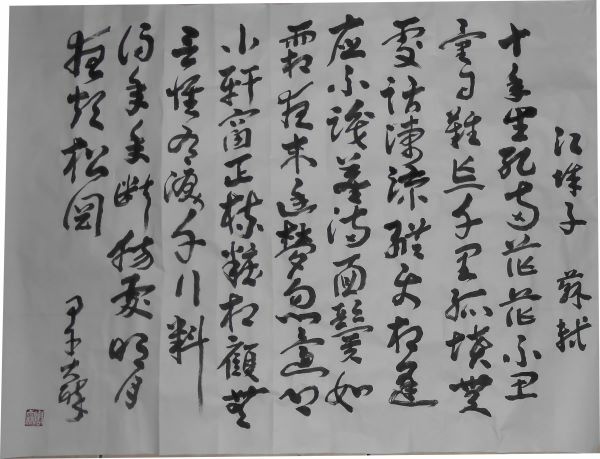 江城子 蘇軾
十年生死兩茫茫不思
量自難忘千里孤墳無
處話淒涼縱使相逢
應不識塵滿面鬢如
霜夜來幽夢忽還鄉
小軒窗正梳粧相顧無
言惟有淚千行料
得年年斷腸處明月
夜短松岡